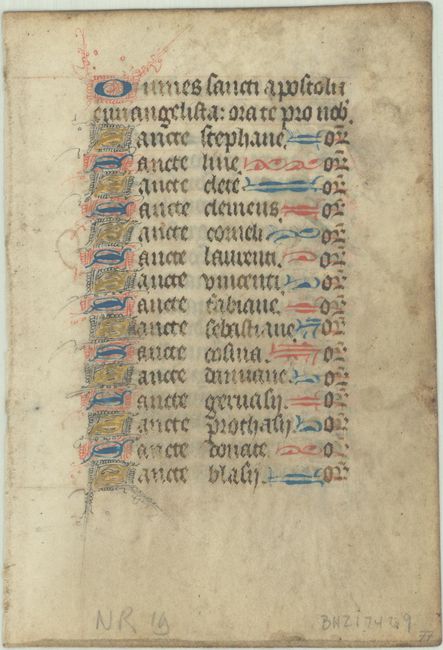 Omnes sancti apostoli
euuangelista: orate pro nob.
Sancte stephane. or.
Sancte line. or.
Sancte clete. or.
Sancte clemens or.
Sancte corneli. or.
Sancte laurenti. or.
Sancte vincenti. or.
Sancte fabiane. or.
Sancte sebastiane. or.
Sancte cosma. or.
Sancte damiane. or.
Sancte geruasij. or.
Sancte prothasij or.
Sancte donate. or.
Sancte blasij. or.
NR 19